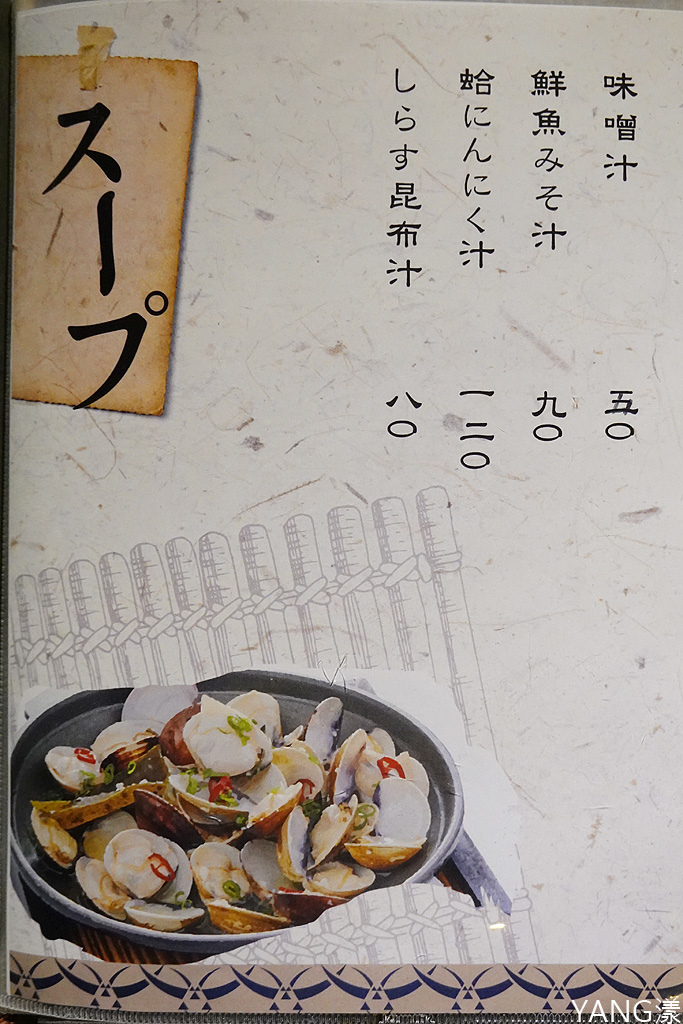 スープ
味噌汁 五〇
鮮魚みそ汁 九〇
蛤にんにく汁 一二〇
しらす昆布汁 八〇
YANG漾